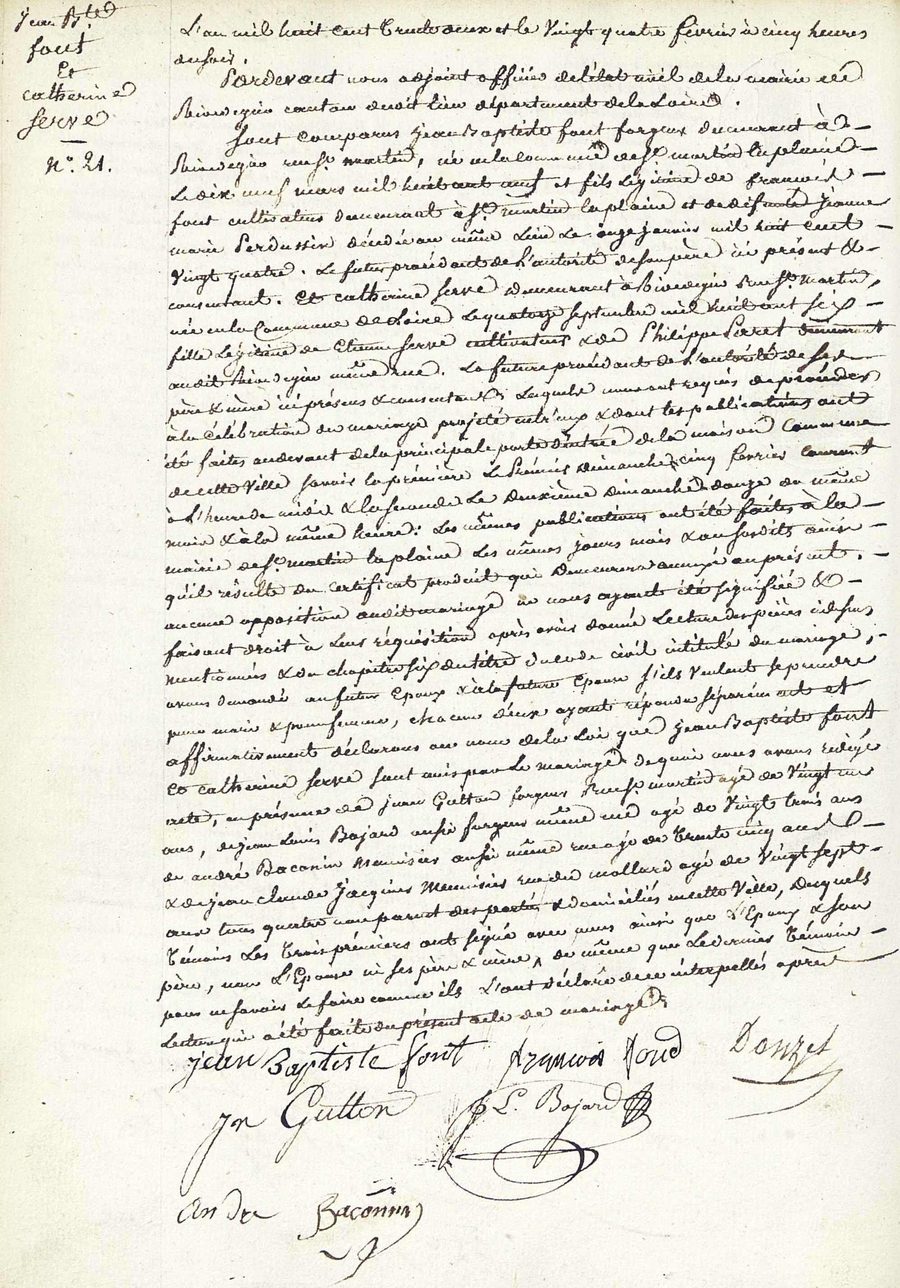 jean Bte
font
Et
catherine
serve
n.° 21.
L'an mil huit cent Trente deux et le Vingt quatre février à cinq heures
du soir.
Pardevant nous adjoint officier de l'état civil de la mairie de
Rivedegier canton dudit lieu département de la Loire.
Sont comparus jean Baptiste font forgeur demeurant à
Rivedegier rue St martin, né en la commune de St martin la plaine
Le dix neuf mars mil huit cent neuf et fils Légitime de francois
font cultivateur demeurant à St martin la plaine et de défunte jeanne
marie Perdussin décédée au même Lieu Le onze janvier mil huit cent
Vingt quatre. Le futur procédant de L'autorité de son père ici présent &
consentant. Et catherine serve demeurant à Rivedegier Rue St martin,
née en la Commune de Loire Le quatorze septembre mil huit cent six
fille Légitime de Etienne serve cultivateur & de Philippe Peret demeurant
audit Rivedegier même rue. La future procédant de L'autorité de ses
père & mère ici présens & consentans Lesquels nous ont requis de procéder
à la célébration du mariage projeté entr'eux & dont les publications ont
été faites au devant de la principale porte d'entrée de la maison Commune
de cette Ville savoir la première Le Premier dimanche cinq février courant
à L'heure de midi & la seconde Le deuxième dimanche douze du même
mois & à la même heure: Les mêmes publications ont été faites à la
mairie de St martin la plaine Les mêmes jours mois & an susdits ainsi
qu'il résulte du certificat produit qui Demeurera annexé au présent.
aucune opposition audit mariage ne nous ayant été signifiée &
faisant droit à Leur réquisition après avoir donné Lecture des pièces ci dessus
mentionnées & du chapitre six du titre du code civil intitulé du mariage,
avons demandé au futur Epoux & à la future Epouse s'ils Veulent se prendre
pour mari & pour femme, chacun d'eux ayant répondu séparément et
affirmativement déclarons au nom de la Loi que jean Baptiste font
et Catherine serve sont unis par Le mariage de quoi nous avons rédigé
acte, en présence de jean Gutton forgeur Rue St martin agé de Vingt un
ans, de jean Louis Bajard aussi forgeur même rue agé de Vingt trois ans
de andré Baconin Menuisier aussi même rue agé de Trente cinq ans &
& de jean claude jacquier Menuisier rue du mollard agé de Vingt sept
ans tous quatre non parent des parties & domiciliés en cette Ville, Lesquels
témoins Les trois prémiers ont signé avec nous ainsi que L'Epoux & son
père, non L'Epouse ni ses père & mère, de même que Le dernier témoin
pour ne savoir Le faire comme ils L'ont déclaré de ce interpellés après
Lecture qui a été faite du présent acte de mariage.
jean Baptiste font françois fond Donzel
Jn Gutton J L. Bajard
andre Baconnin